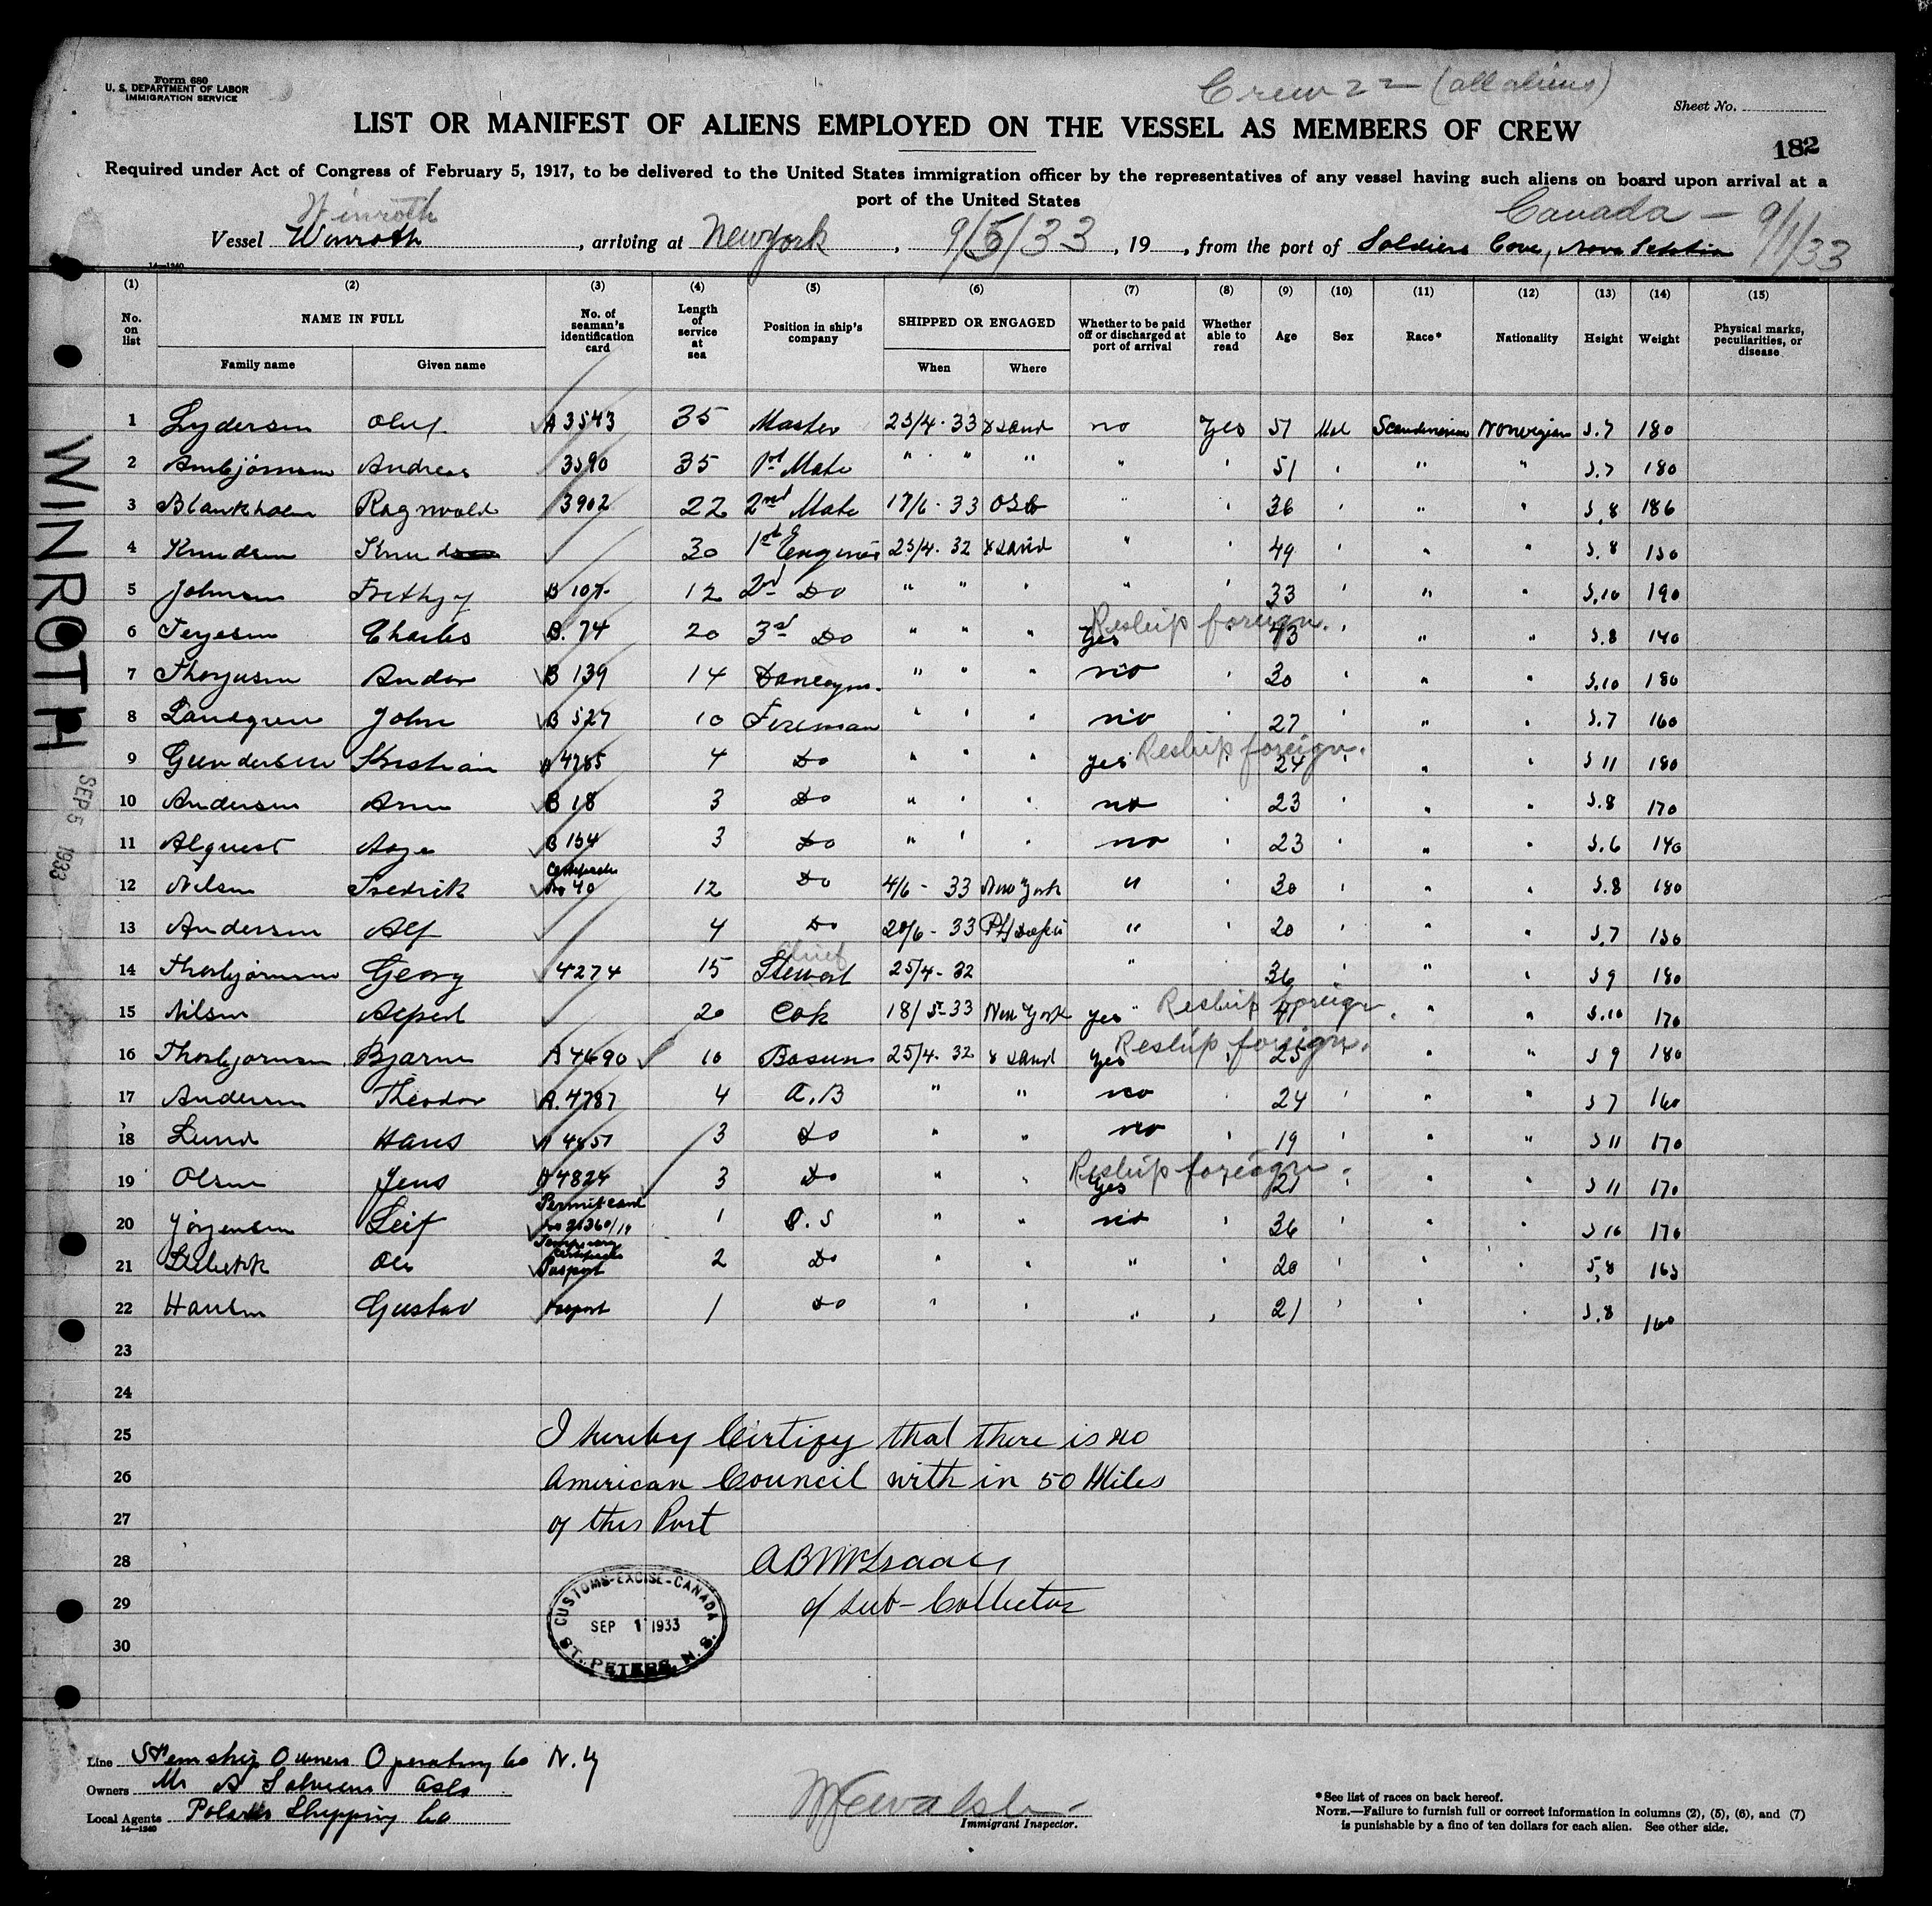 Form 680
U. S. DEPARTMENT OF LABOR
IMMIGRATION SERVICE
Crew 22 (all aliens)
Sheet No.
LIST OR MANIFEST OF ALIENS EMPLOYED ON THE VESSEL AS MEMBERS OF CREW
182
Required under Act of Congress of February 5, 1917, to be delivered to the United States immigration officer by the representatives of any vessel having such aliens on board upon arrival at a
port of the United States
Winroth Canada – 9/1/33
Vessel Winroth, arriving at New York, 9/5/33, 19, from the port of Soldiers Cove, Nova
14—1240
(1) (2) (3) (4) (5) (6) (7) (8) (9) (10) (11) (12) (13) (14) (15)
No. on list NAME IN FULL No. of seaman's identification card Length of service at sea Position in ship's company SHIPPED OR ENGAGED Whether to be paid off or discharged at port of arrival Whether able to read Age Sex Race* Nationality Height Weight Physical marks, peculiarities, or disease
Family name Given name When Where
1 Lydersen Oluf A 3543 35 Master 25/4 · 33 no Yes 51 Mal Scandinavian Norwegian 5.7 180
2 Andreas 3590 35 1st Mate " " " " " ' 51 ' " " 5.7 180
3 Ragnvald 3902 22 2nd Mate 17/6 · 33 Oslo " ' 36 ' " " 5.8 186
4 Knudsen Knud 30 1st 25/4 · 32 " ' 49 ' " " 5.8 150
5 Johnsen B 107 12 2nd Do " " " " ' 33 ' " " 5.10 190
Reship foreign.
6 Terjesen Charles B. 74 20 3rd Do " " " Yes 43 ' " " 5.8 140
7 B 139 14 " " " no ' 30 ' " " 5.10 180
8 Landgren John B 527 10 Fireman " " " no ' 27 ' " " 5.7 160
Reship foreign.
9 Gundersen Kristian A 4785 4 Do " " " yes ' 24 " " 5 11 180
10 Andersen B 18 3 Do " " " no ' 23 ' " " 5.8 170
11 Alquest Aage B 154 3 Do " " " no ' 23 ' " " 5.6 140
Certificate
12 Nilsen Fredrik No 40 12 Do 4/6 - 33 New York " ' 30 ' " " 5.8 180
13 Andersen Alf 4 Do 20/6 - 33 " ' 20 ' " " 5.7 150
Chief
14 Thorbjørnsen Georg 4274 15 Stewart 25/4 - 32 " 36 ' " " 5 9 180
15 Nilsen Alfred 20 Cok 18/5-33 New York yes " Reship foreign. " " 5.10 170
Reship foreign.
16 Thorbjornsen Bjarne A 4690 10 Bosun 25/4. 32 Yes ' 25 ' " " 5 9 180
17 Andersen Theodor A. 4787 4 A.B " " no ' 24 ' " " 5 7 160
18 Lund Hans A 4857 3 Do " " no ' 19 ' " " 5 11 170
Reship foreign.
19 Olsen Jens A 4824 3 Do " " Yes 21 ' " " 5 11 170
Permit card
20 Jørgensen Leif 1 O. S " " no ' 36 ' " " 5 10 170
Temporary
Certificate
21 Ole Passport 2 Do " " " ' 20 ' " " 5,8 165
22 Hansen Gustav Passport 1 Do " " " ' 21 ' " " 5.8 160
23
24
25 I hereby Certify that there is no
26 American Council with in 50 Miles
27 of this Port
28 A B McIsaac
29 Sub-Collector
30
CUSTOMS-EXCISE-CANADA
SEP 1 1933
ST. PETERS, N. S.
WINROTH
SEP 5 1933
Line Stemship Owners Operating Co N.Y
Owners Mr Oslo
Local Agents Polarus Shipping Co
14—1240
Immigrant Inspector.
*See list of races on back hereof.
NOTE.—Failure to furnish full or correct information in columns (2), (5), (6), and (7)
is punishable by a fine of ten dollars for each alien. See other side.